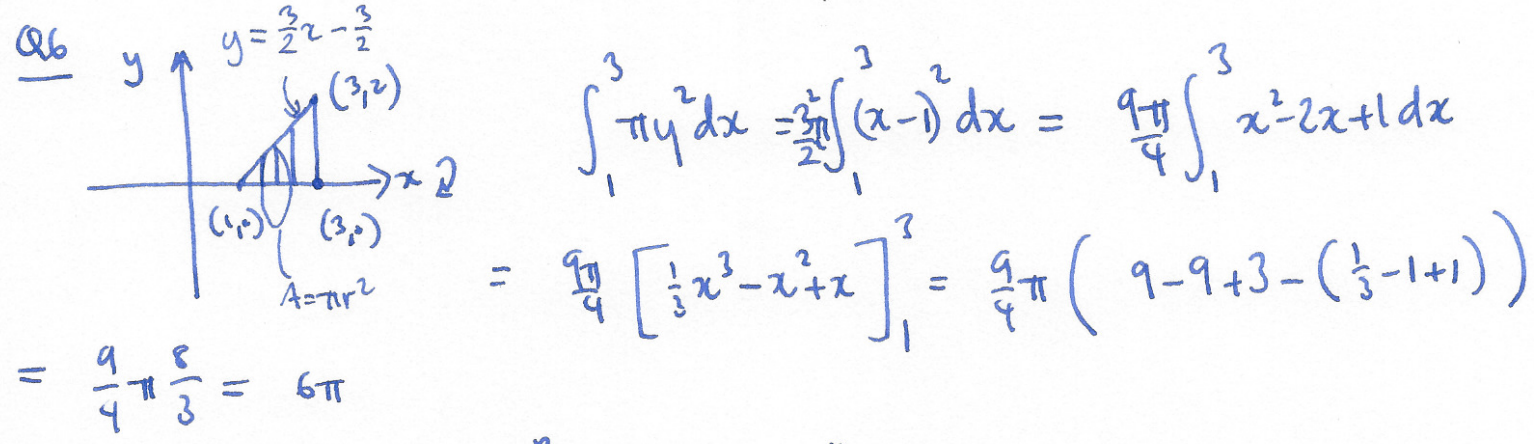 Q6
y
y = 3/2 x - 3/2
(3,2)
x
(1,0) (3,0)
A = πr²
∫₁³ πy² dx = 3²/2 π ∫₁³ (x-1)² dx = 9π/4 ∫₁³ x² - 2x + 1 dx
= 9π/4 [ 1/3 x³ - x² + x ]₁³ = 9/4 π ( 9 - 9 + 3 - ( 1/3 - 1 + 1 ) )
= 9/4 π 8/3 = 6π